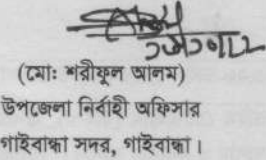 (মো: শরীফুল আলম)
উপজেলা নির্বাহী অফিসার
গাইবান্ধা সদর, গাইবান্ধা।